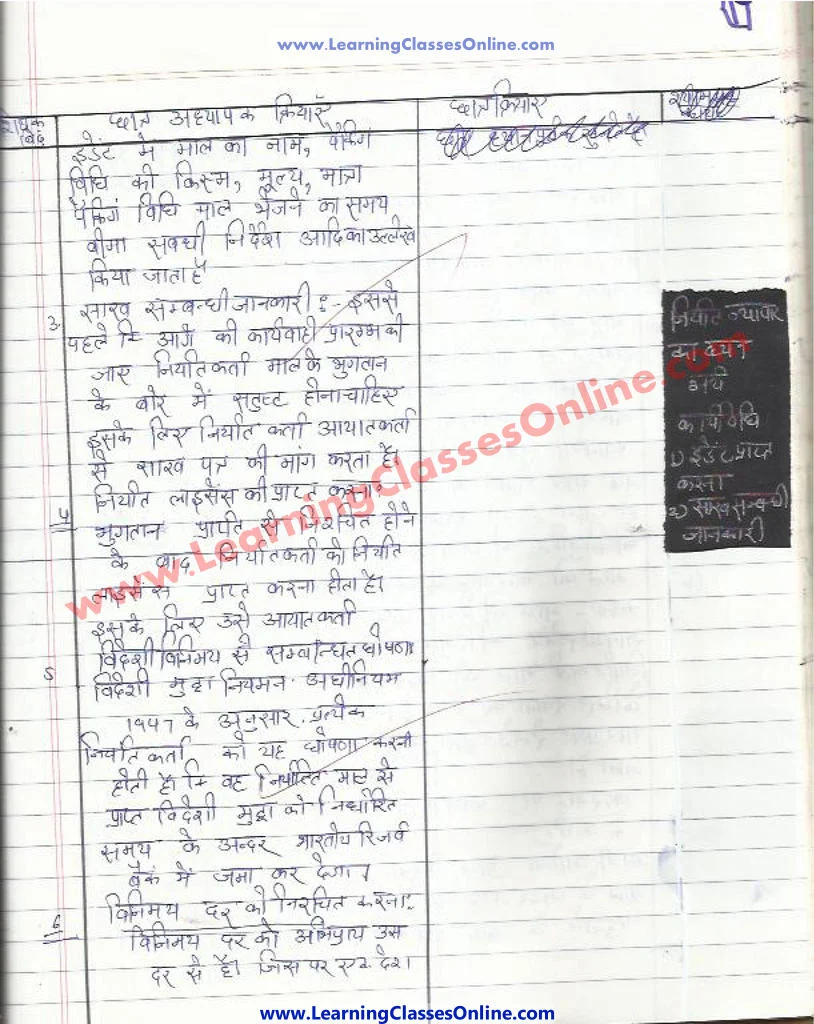 www.LearningClassesOnline.com
छात्र अध्यापक क्रियाएँ
छात्र क्रियाएं
इंडेंट में माल का नाम, पैकिंग
विधि की किस्म, मूल्य, मात्रा
पैकिंग विधि माल भेजने का समय
बीमा सबंधी निर्देश आदि का उल्लेख
किया जाता है
3. साख सम्बन्धी जानकारी :- इससे
पहले कि आगे की कार्यवाही प्रारम्भ की
जाए निर्यातकर्ता माल के भुगतान
के बारे में सतुष्ट होना चाहिए
इसके लिए निर्यात कर्ता आयातकर्ता
से साख पत्र की मांग करता है।
निर्यात लाइसेंस की प्राप्त करना:
4 भुगतान प्राप्ति से निश्चित होने
के बाद निर्यातकर्ता को निर्यात
लाइसेंस प्राप्त करना होता है।
इसके लिए उसे आयातकर्ता
विदेशी विनिमय से सम्बन्धित घोषणा
5 विदेशी मुद्रा नियमन अधीनियम
1947 के अनुसार प्रत्येक
निर्यातकर्ता को यह घोषणा करनी
होती है कि वह निर्यातित माल से
प्राप्त विदेशी मुद्रा को निर्धारित
समय के अन्दर भारतीय रिजर्व
बैंक में जमा कर देगा।
विनिमय दर को निश्चित करना:
6 विनिमय दर को अभिप्राय उस
दर से है। जिस पर एक देश
निर्यात व्यापार
का
कार्यविधि
1) इंडेंट प्राप्त
करना
2) साख सम्बन्धी
जानकारी
www.LearningClassesOnline.com
www.LearningClassesOnline.com